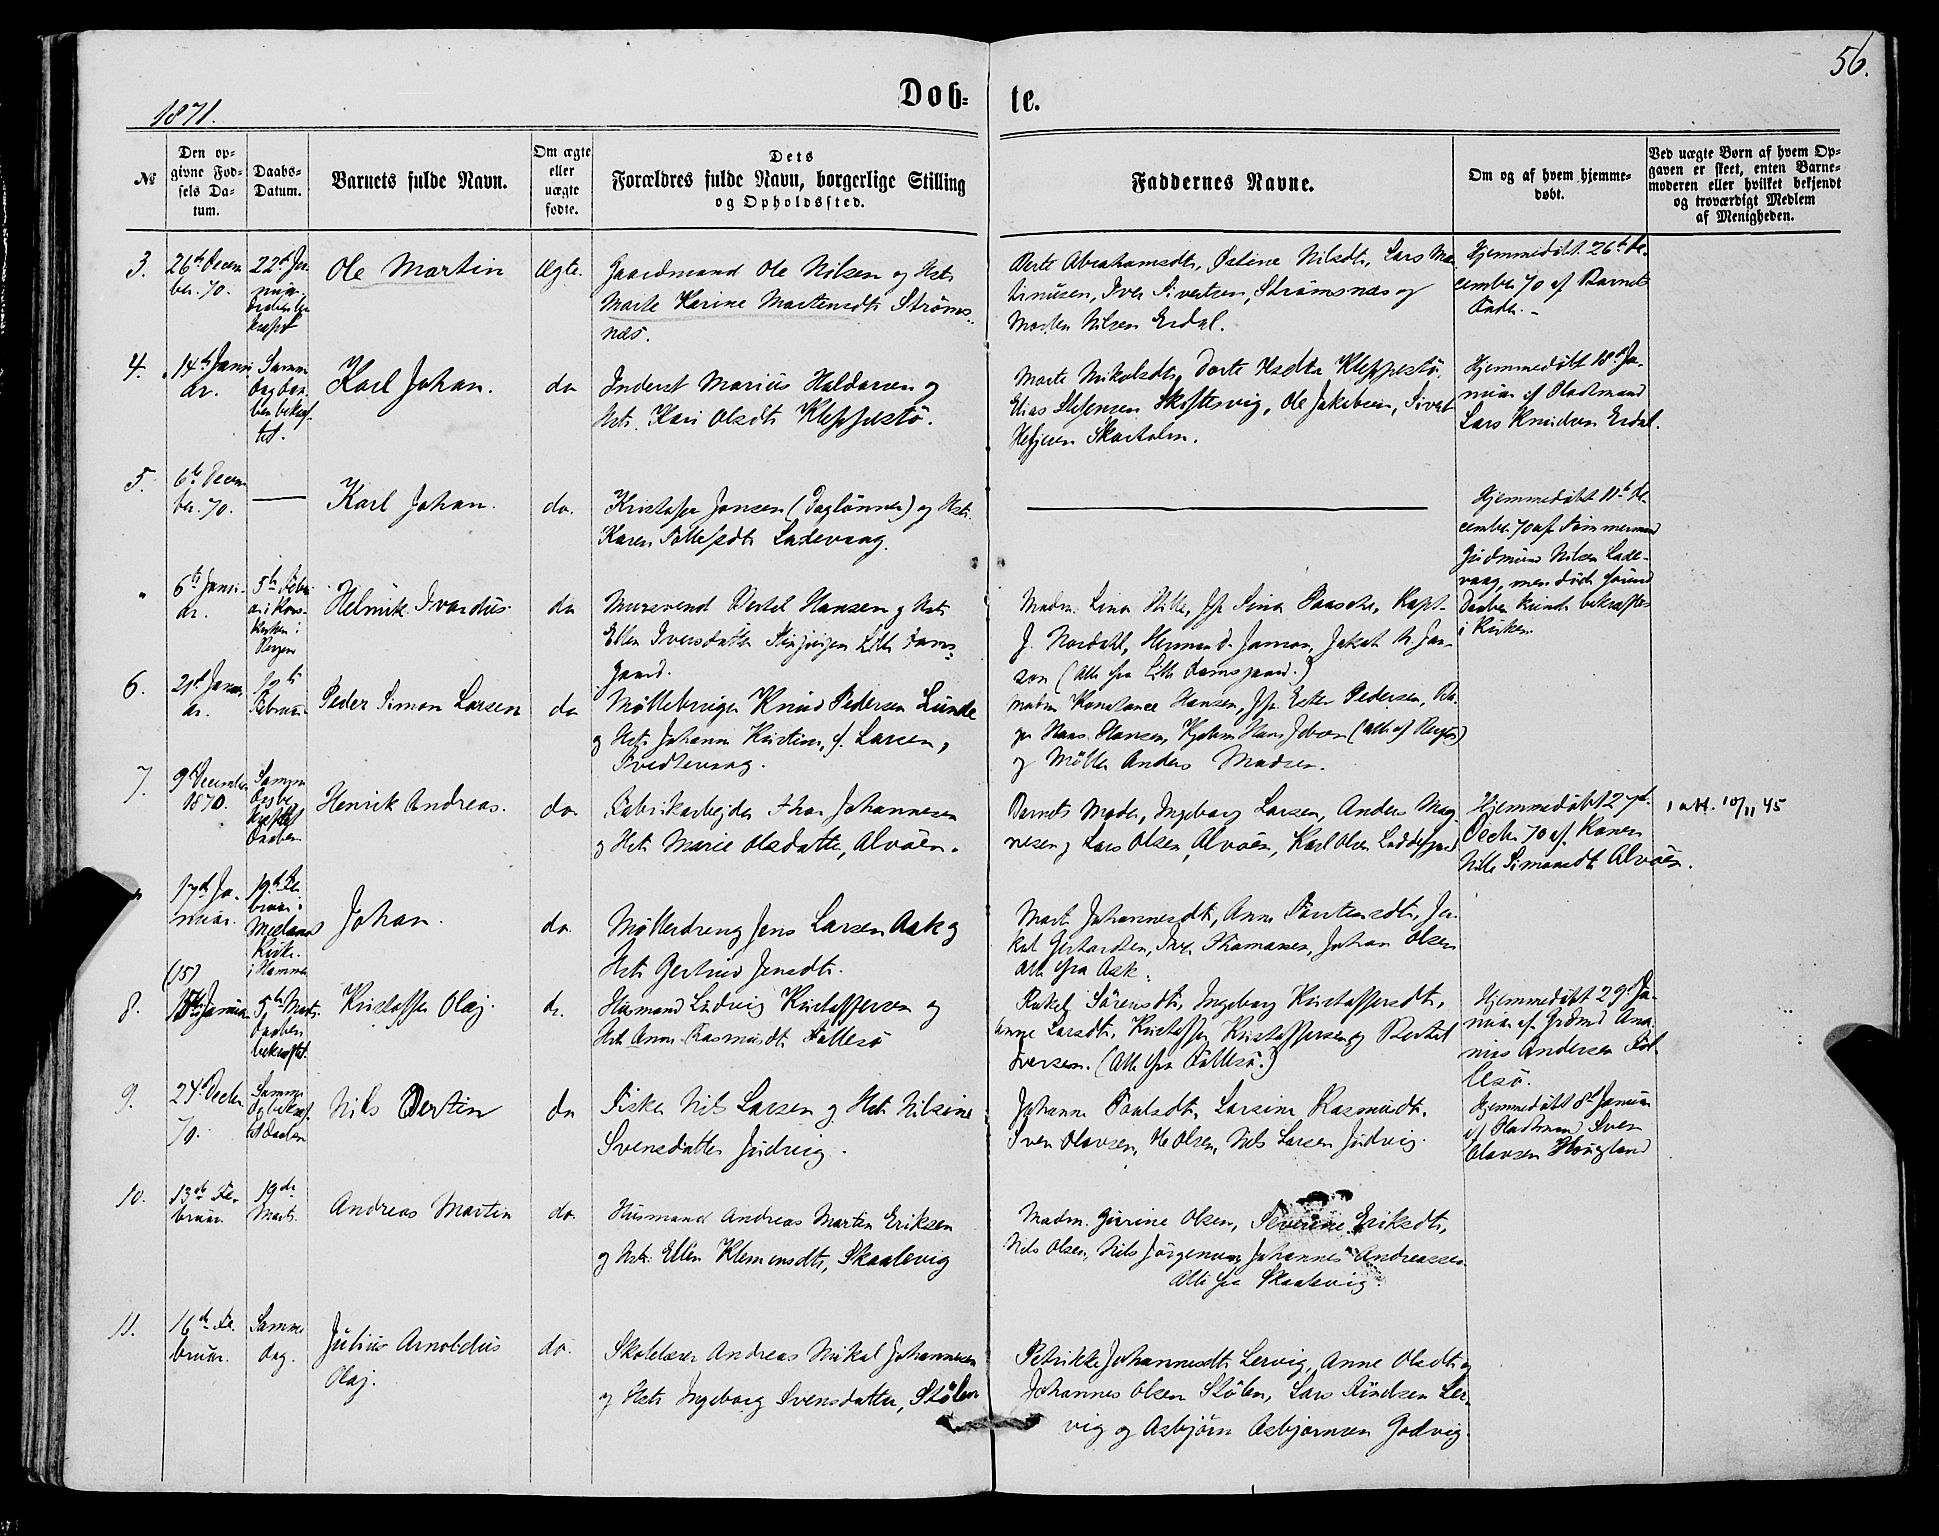 56.
Döb= te.
1871.
№
Den op-
givne Fød-
sels Da-
tum.
Daabs-
Datum.
Barnets fulde Navn.
Om ægte
eller
uægte
fødte.
Dets
Forældres fulde Navn, borgerlige Stilling
og Opholdssted.
Faddernes Navne.
Om og af hvem hjemme-
døbt.
Ved uægte Børn af hvem Op-
gaven er skeet, enten Barne-
moderen eller hvilket bekjendt
og troværdigt Medlem
af Menigheden.
3.
26de Decem
ber. 70.
22de Ja-
nuar.
Daaben be-
kræftet
Ole Martin
Ægte.
Gaardmand Ole Nilsen og Hstr
Marte Karine Martensdtr Strøms-
næs.
Berte Abrahamsdtr, Nilsdtr, Lars Ma-
Iver Sivertsen, Strømsnæs og
Morten Nilsen Erdal.
Hjemmedøbt 26de De-
cember 70 af Barnets
Fader.
4.
14de Janu
ar.
Samme
Dag Daa-
ben bekræf-
tet.
Karl Johan.
do
Inderst Marius Haldorsen og
Hstr. Kari Olsdtr Kleppestø.
Marte Mikalsdtr, Dorte Kleppestø.
Elias Steffensen Skiftesvig, Ole Jakobsen, Sivert
Skarholm.
Hjemmedøbt 18de Ja-
nuar af Pladsmand
Lars Knudsen Erdal.
5.
6te Decem
ber. 70.
Karl Johan.
do.
Kristoffer Jonsen (Daglønner) og Hstr.
Karen Ladevaag.
Hjemmedøbt 11te De-
cember 70 af Tømmermand
Gudmund Nilsen Lade-
vaag, men døde førend
Daaben kunde bekræftes
i Kirken.
"
6te Janu-
ar.
5te Febru-
ar i Kors-
kirken i
Bergen
Helmik Ivardus.
do
Murersvend Bertel Hansen og Hstr
Ellen Iversdatter Lille Dams-
gaard.
Madm. Lina Jfr Lina Paasche, Kapt.
J. Nordahl, Herman D. Janson, Jakob Jan-
son (Alle fra Lille Damsgaard.)
6.
21de Janu-
ar.
19de
Februar
Peder Simon Larsen
do
Møllebruger Knud Pedersen Lunde
og Hstr Johanne Kristine, f. Larsen,
Tvedtevaag.
Madm Konstance Hansen, Jfr. Ester Pedersen,
Hans Hansen, Hans (Alle af Bergen)
og Møller Anders Madsen.
7.
9de December
1870.
Samme
Dag be-
kræftet
Daaben
Henrik Andreas.
do.
Fabrikarbejder Thor Johannesen
og Hstr Marie Olsdatter, Alvøen.
Barnets Moder, Ingeborg Larsen, Anders Mag-
nesen og Lars Olsen, Alvøen, Karl Olsen Laddefjord
Hjemmedøbt 27de
Decbr. 70 af Konen
Nille Simonsdtr Alvøen.
1 att. 10/11 45
"
17de Ja-
nuar.
19de Fe-
bruar i
Mjelands
Kirke
i Hammer
Johan.
do.
Møllerdreng Jens Larsen Ask og
Hstr Gertrud Jensdtr.
Marte Johannesdtr, Anne Ja-
kob Gerhardsen, Thomassen, Johan Olsen
Alle fra Ask.
8.
(15)
15de Januar
5te Marts.
Daaben
bekræftet.
Kristoffer Olaj.
do.
Husmand Ludvig Kristoffersen og
Hstr Anne Rasmusdtr Follesø
Rakel Sørensdtr, Ingeborg Kristoffersdtr,
Anne Larsdtr, Kristoffer Kristoffersen og Bertel
Iversen. (Alle fra Follesø.)
Hjemmedøbt 29de Ja-
nuar af Grdmd Ana-
nias Andersen Fol-
lesø.
9.
24de Decbr.
70.
Samme
Dag bekræf-
tet Daaben
Nils Bertin
do
Fisker Nils Larsen og Hstr Nilsine
Svensdatter Judvig.
Johanne Larsine Rasmusdtr.
Sven Olavsen, Ole Olsen, Nils Larsen Judvig.
Hjemmedøbt 8de Januar
af Pladsmand Sven
Olavsen Haugland
10.
13de Fe-
bruar.
19de
Marts.
Andreas Martin
do.
Husmand Andreas Martin Eriksen
og Hstr. Ellen Klemensdtr, Skaalevig
Madm. Gurine Olsen, Severine Eriksdtr,
Nils Olsen, Nils Jørgensen, Johannes Andreassen
Alle fra Skaalevig.
11.
16de Fe-
bruar.
Samme
dag.
Julius Arnoldus
Olaj.
do.
Skolelærer Andreas Mikal Johannesen
og Hstr Ingeborg Svensdatter, Stølen
Petrikke Johannesdtr Lervig, Anne Olsdtr og
Johannes Olsen Stølen, Lars Knudsen Ler-
vig og Asbjørn Asbjørnsen Godvig.